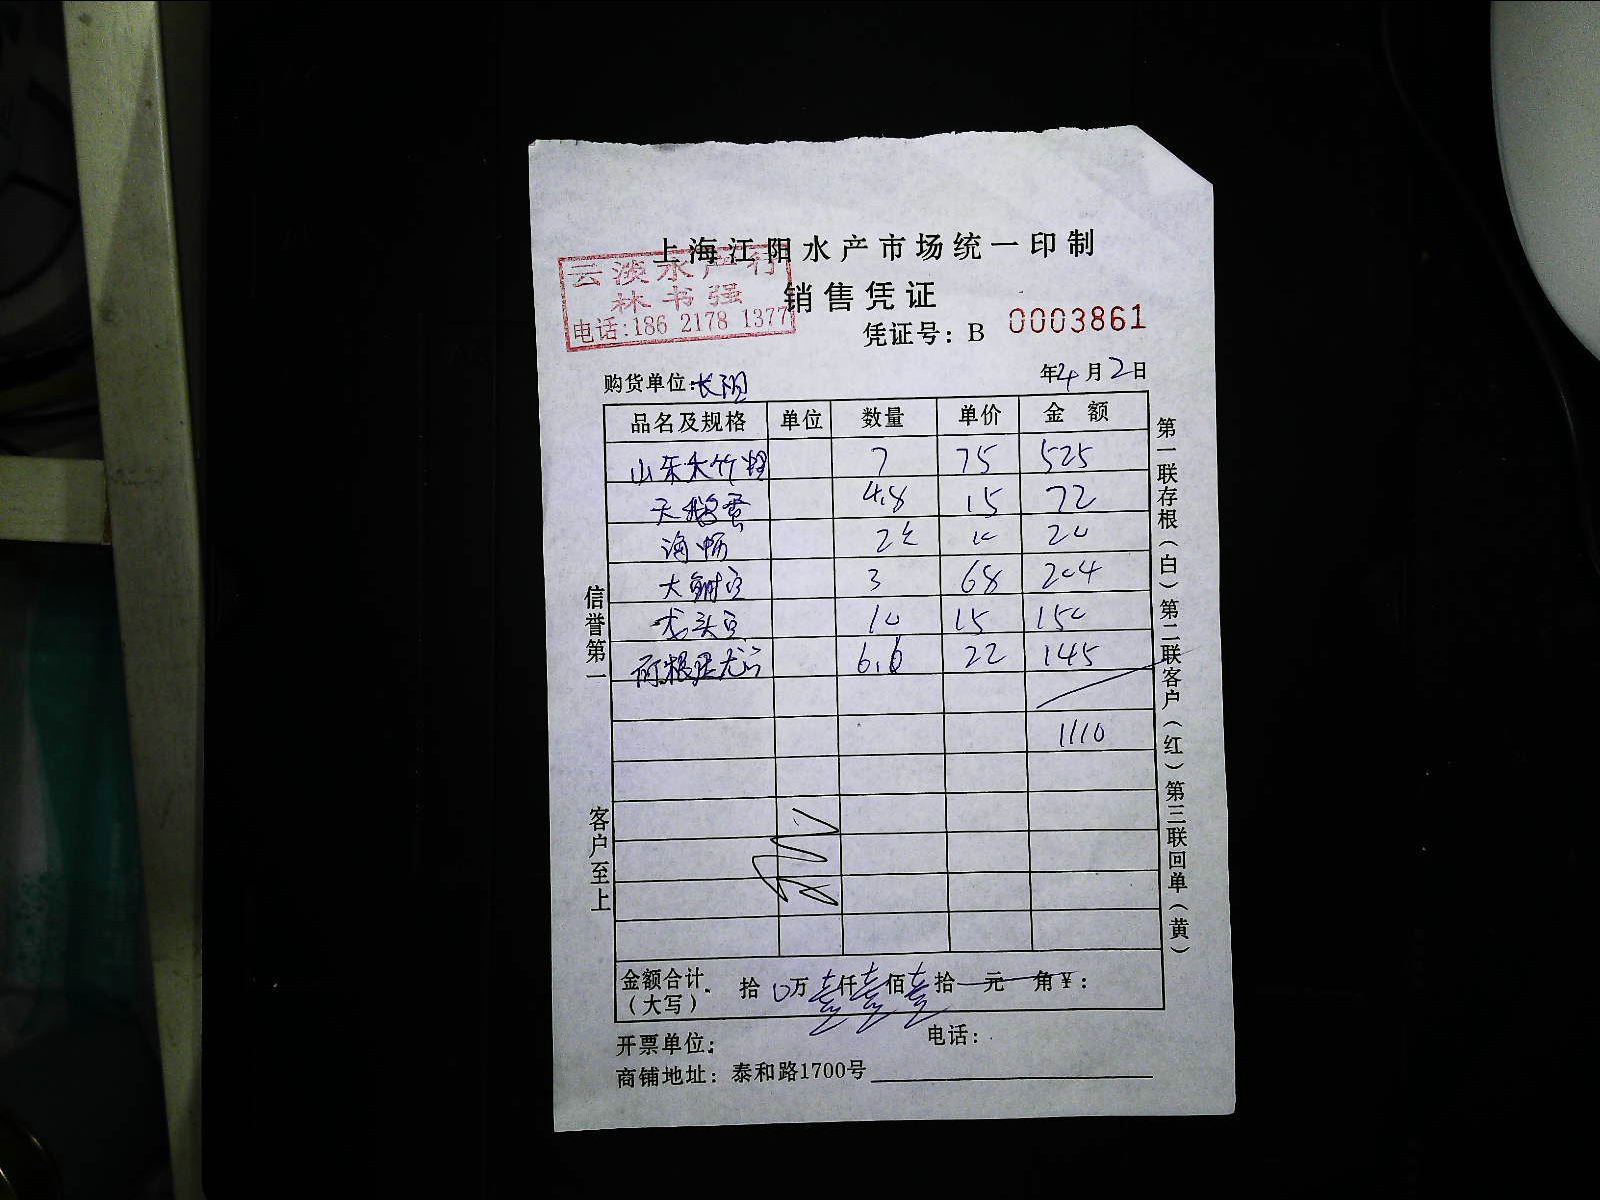 上海江阳水产市场统一印制
云淡水产行
林书强
电话:186 2178 1377
销售凭证
凭证号: B 0003861
购货单位: 长阳 年4月2日
品名及规格 单位 数量 单价 金额
山东大竹 7 75 525
天鹅蛋 4.8 15 72
海 2 10 20
大 3 68 204
龙头 10 15 150
6.6 22 145
1110
金额合计(大写) 拾0万壹仟壹佰壹拾元角¥:
开票单位: 电话:
商铺地址: 泰和路1700号
信誉第一
客户至上
第一联存根(白)第二联客户(红)第三联回单(黄)